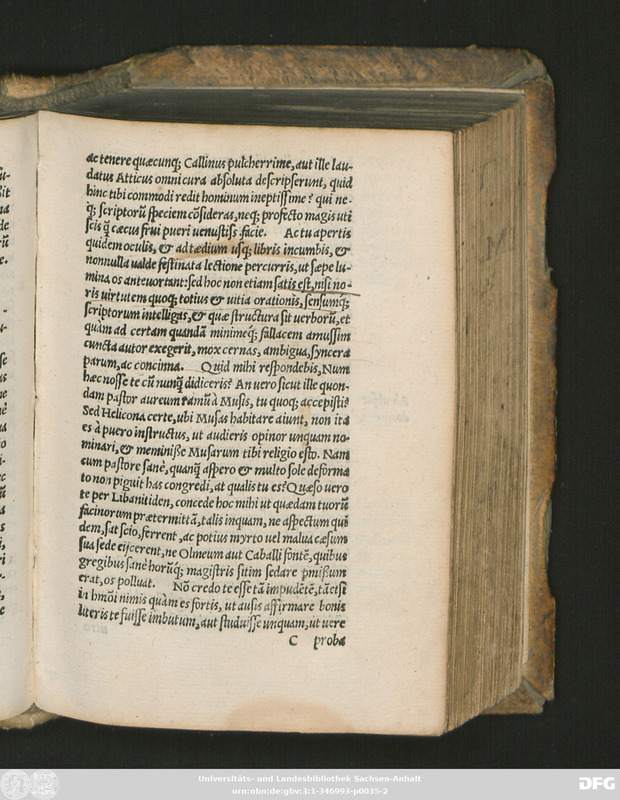 ac tenere quæcunq; Callinus pulcherrime, aut ille lau-
datus Atticus omni cura absoluta descripserunt, quid
hinc tibi commodi redit hominum ineptissime? qui ne-
q; scriptorũ speciem cõsideras, neq; profecto magis uti
scis q̃ cæcus frui pueri venustiss. facie. Ac tu apertis
quidem oculis, & ad tædium usq; libris incumbis, &
nonnulla valde festinata lectione percurris, ut sæpe lu-
mina os antevortant: sed hoc non etiam satis est, nisi no-
ris virtutem quoq; totius & vitia orationis, sensumq;
scriptorum intelligas, & quæ structura sit verborũ, et
quàm ad certam quandã minimeq; fallacem amussim
cuncta autor exegerit, mox cernas, ambigua, syncera
parum, ac concinna. Quid mihi respondebis, Num
hæc nosse te cũ nunq̃ didiceris? An vero sicut ille quon-
dam pastor aureum ramũ à Musis, tu quoq; accepisti?
Sed Helicona certe, ubi Musas habitare aiunt, non ita
es à puero instructus, ut audieris opinor unquam no-
minari, & meminiße Musarum tibi religio esto. Nam
cum pastore sanè, quanq̃ aspero & multo sole deforma
to non piguit has congredi, at qualis tu es? Quæso vero
te per Libanitiden, concede hoc mihi ut quædam tuorũ
facinorum prætermittã, talis inquam, ne aspectum quĩ
dem, sat scio, ferrent, ac potius myrto vel malva cæsum
sua sede eijcerent, ne Olmeum aut Caballi fontẽ, quibus
gregibus sanè horũq; magistris sitim sedare pmißum
erat, os polluat. Nõ credo te esse tã impudẽtẽ, tãetsi
in hmõi nimis quàm es fortis, ut ausis affirmare bonis
literis te fuisse imbutum, aut studuisse unquam, ut vere
C proba
Universitäts- und Landesbibliothek Sachsen-Anhalt
urn:nbn:de:gbv:3:1-346993-p0035-2
DFG